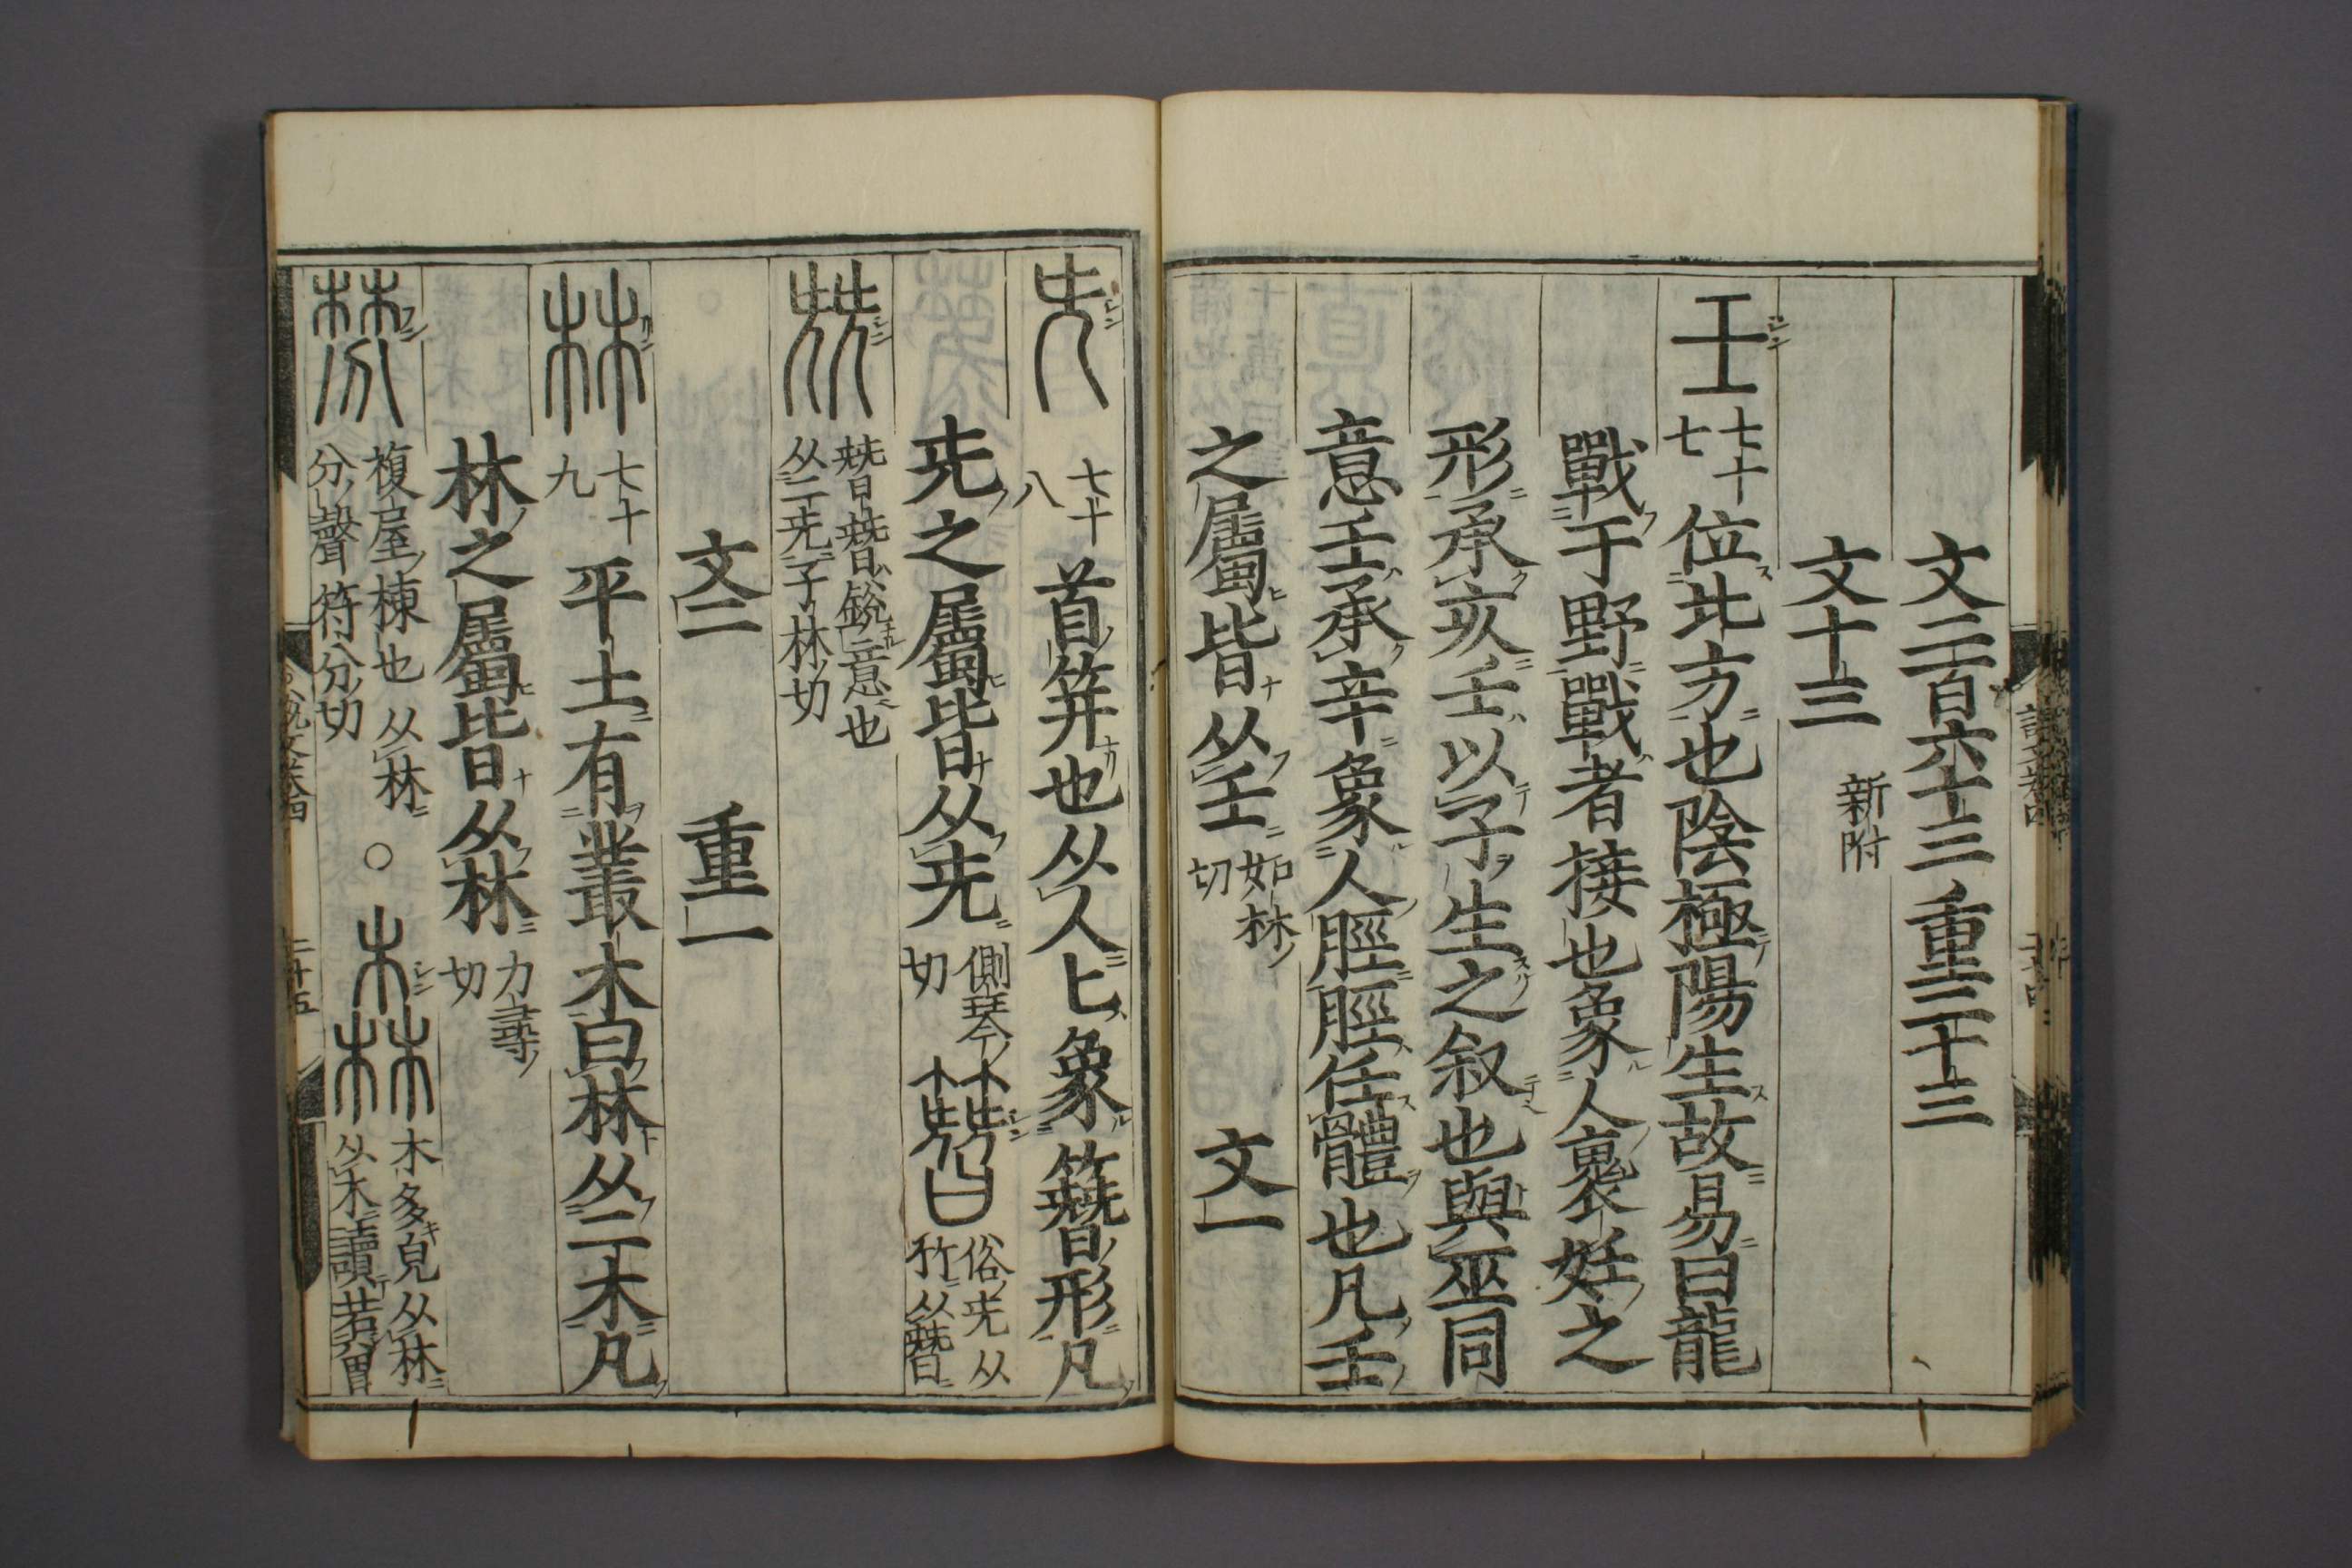 文二百六十三 重三十三
文十三 新附
壬 七十七 位北方也陰極陽生故易曰龍
戰于野戰者接也象人褢妊之
形承亥壬以子生之叙也與巫同
意壬承辛象人脛脛任體也凡壬
之屬皆从壬 如林切 文一
兂 七十八 首笄也从人匕象簪形凡
兂之屬皆从兂 側琴切 簪 俗兂从竹从朁
兓 朁朁銳意也从二兂子林切
文二 重一
林 七十九 平土有叢木曰林从二木凡
林之屬皆从林 力尋切
棼 複屋棟也从林分聲符分切 ○ 森 木多皃从林从木讀若曾